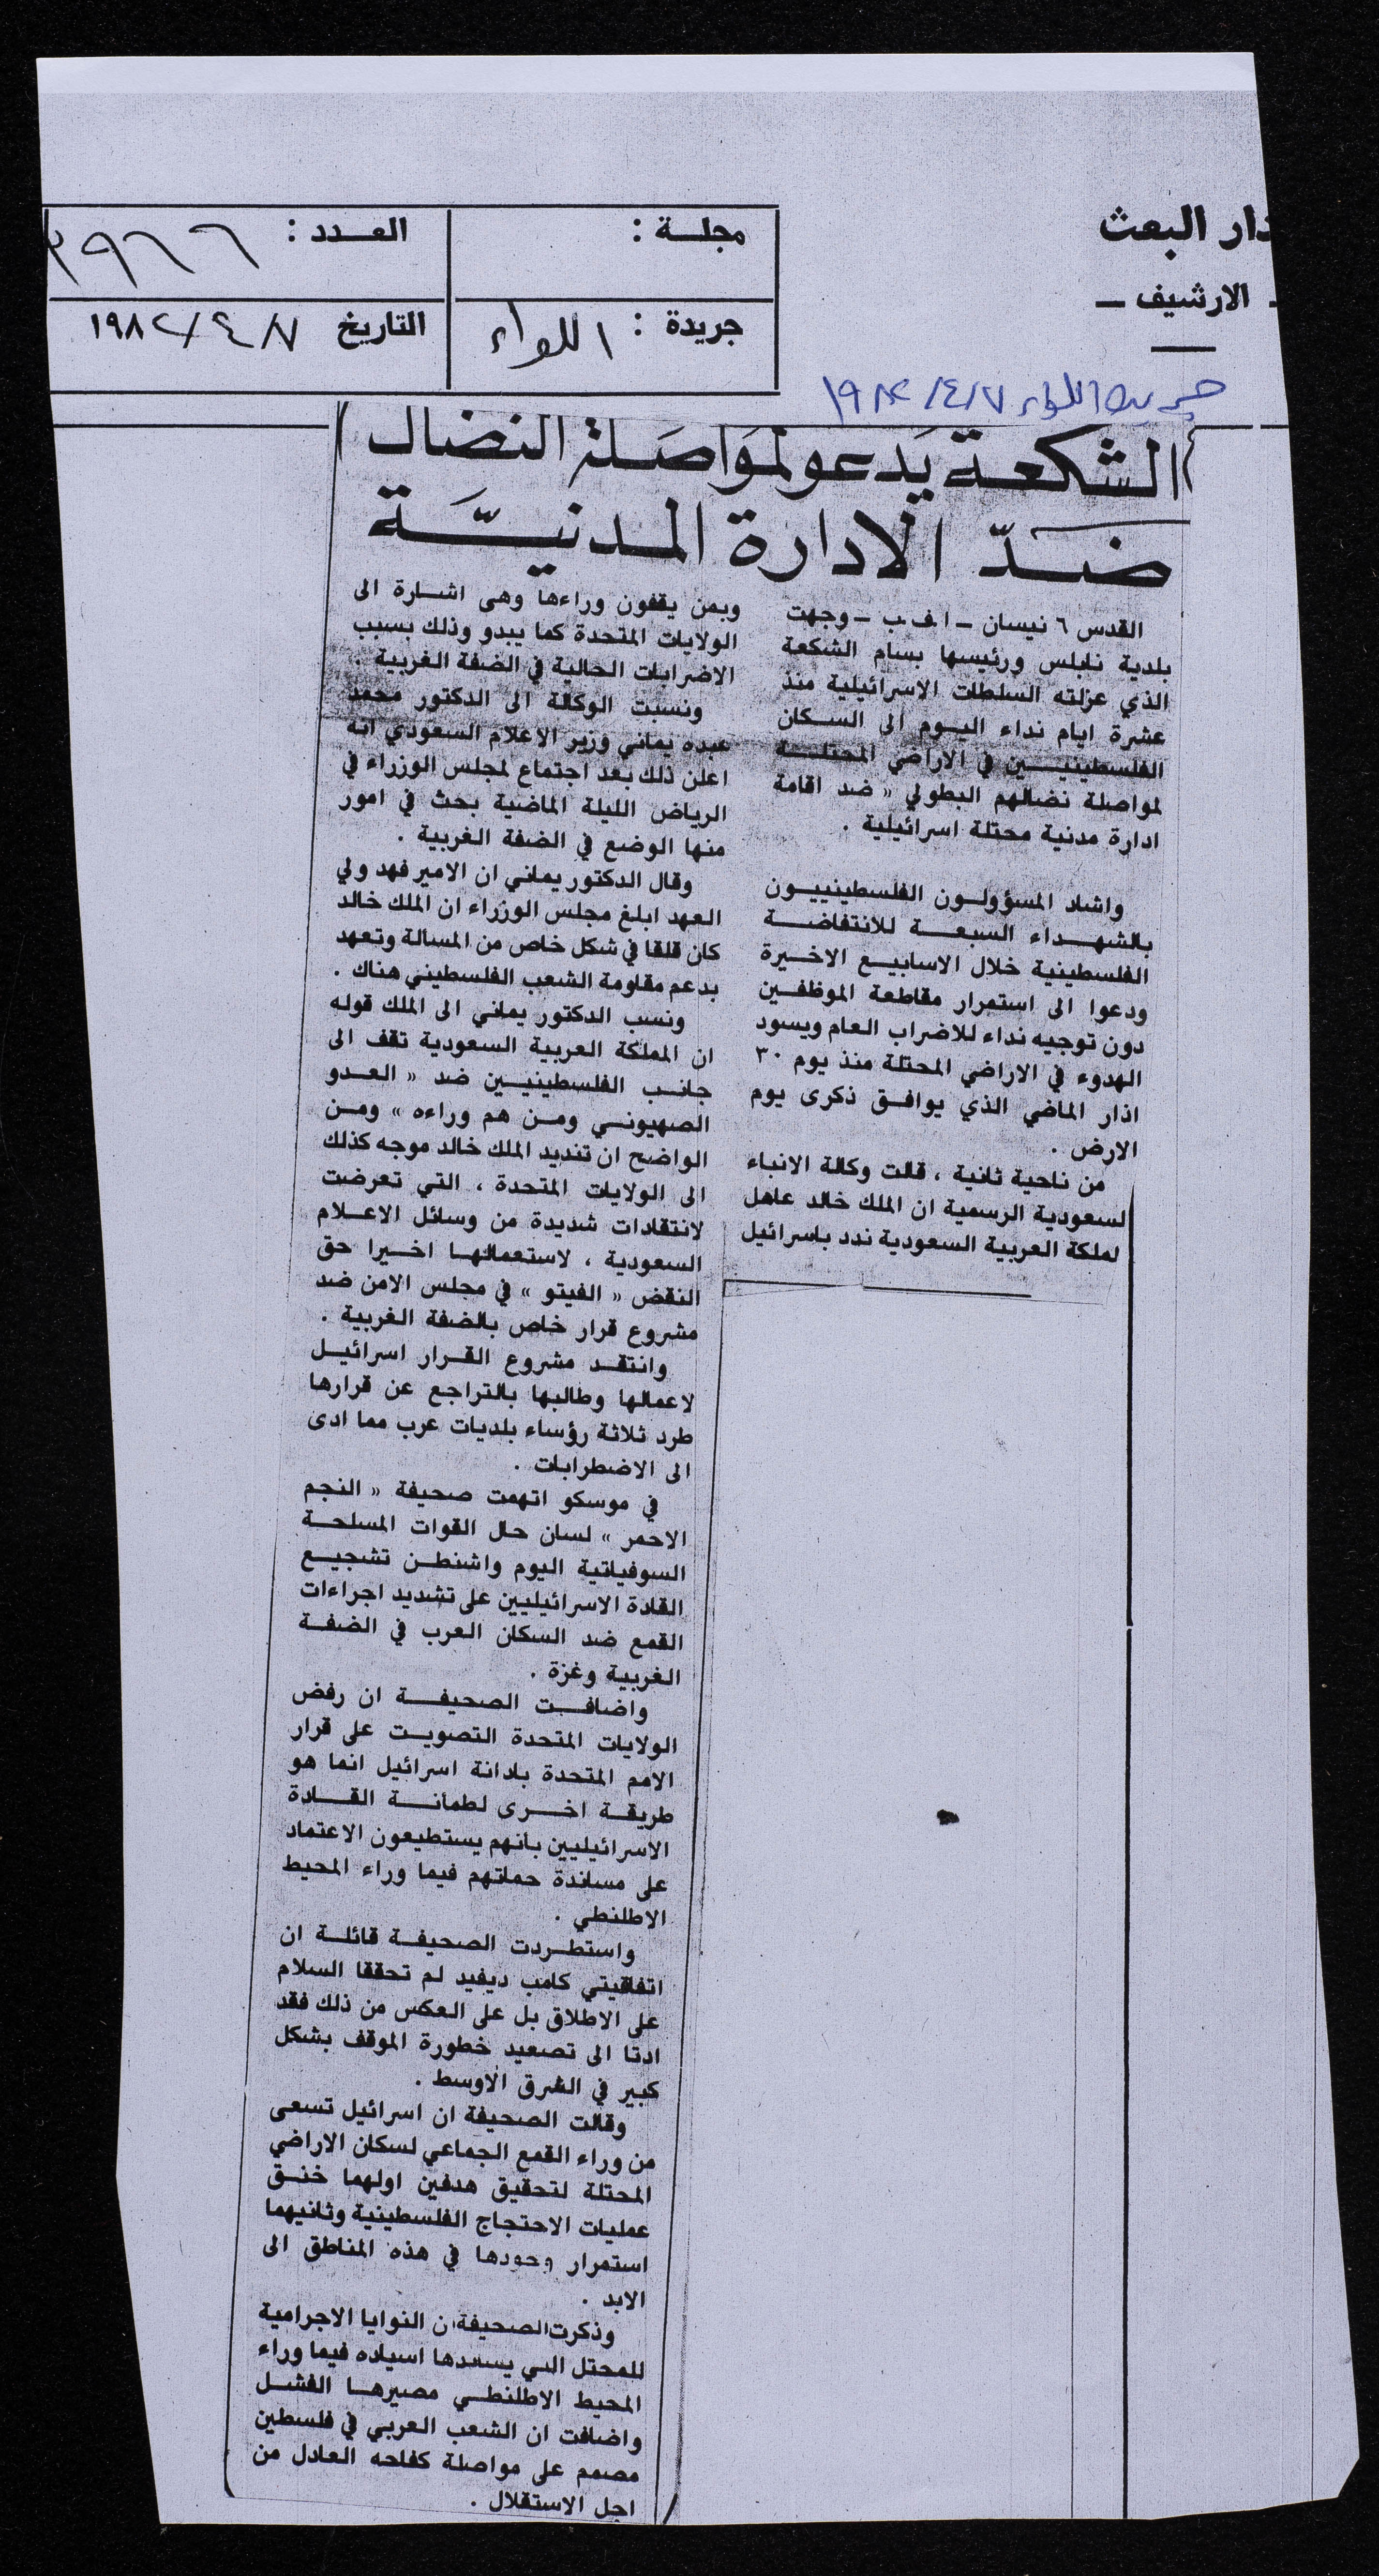 دار البعث
- الارشيف -
مجلة :
العدد : ٣٩٦٦
جريدة : اللواء
التاريخ ١٩٨٢/٤/٧
جريدة اللواء ١٩٨٢/٤/٧
(الشكعة يدعو لمواصلة النضال)
ضد الادارة المدنية
القدس ٦ نيسان - ا ف ب - وجهت
بلدية نابلس ورئيسها بسام الشكعة
الذي عزلته السلطات الاسرائيلية منذ
عشرة ايام نداء اليوم الى السكان
الفلسطينيين في الاراضي المحتلة
لمواصلة نضالهم البطولي « ضد اقامة
ادارة مدنية محتلة اسرائيلية .
واشاد المسؤولون الفلسطينييون
بالشهداء السبعة للانتفاضة
الفلسطينية خلال الاسابيع الاخيرة
ودعوا الى استمرار مقاطعة الموظفين
دون توجيه نداء للاضراب العام ويسود
الهدوء في الاراضي المحتلة منذ يوم ٣٠
اذار الماضي الذي يوافق ذكرى يوم
الارض .
من ناحية ثانية ، قالت وكالة الانباء
لسعودية الرسمية ان الملك خالد عاهل
لملكة العربية السعودية ندد باسرائيل
وبمن يقفون وراءها وهي اشارة الى
الولايات المتحدة كما يبدو وذلك بسبب
الاضرابات الحالية في الضفة الغربية .
ونسبت الوكالة الى الدكتور محمد
عبده يماني وزير الاعلام السعودي انه
اعلن ذلك بعد اجتماع لمجلس الوزراء في
الرياض الليلة الماضية بحث في امور
منها الوضع في الضفة الغربية .
وقال الدكتور يماني ان الامير فهد ولي
العهد ابلغ مجلس الوزراء ان الملك خالد
كان قلقا في شكل خاص من المسالة وتعهد
بدعم مقاومة الشعب الفلسطيني هناك .
ونسب الدكتور يماني الى الملك قوله
ان المملكة العربية السعودية تقف الى
جانب الفلسطينيين ضد « العدو
الصهيوني ومن هم وراءه » ومن
الواضح ان تنديد الملك خالد موجه كذلك
الى الولايات المتحدة ، التي تعرضت
لانتقادات شديدة من وسائل الاعلام
السعودية ، لاستعمالها اخيرا حق
النقض « الفيتو » في مجلس الامن ضد
مشروع قرار خاص بالضفة الغربية .
وانتقد مشروع القرار اسرائيل
لاعمالها وطالبها بالتراجع عن قرارها
طرد ثلاثة رؤساء بلديات عرب مما ادى
الى الاضطرابات .
في موسكو اتهمت صحيفة « النجم
الاحمر » لسان حال القوات المسلحة
السوفياتية اليوم واشنطن تشجيع
القادة الاسرائيليين على تشديد اجراءات
القمع ضد السكان العرب في الضفة
الغربية وغزة .
واضافت الصحيفة ان رفض
الولايات المتحدة التصويت على قرار
الامم المتحدة بادانة اسرائيل انما هو
طريقة اخرى لطمانة القادة
الاسرائيليين بانهم يستطيعون الاعتماد
على مساندة حماتهم فيما وراء المحيط
الاطلنطي .
واستطردت الصحيفة قائلة ان
اتفاقيتي كامب ديفيد لم تحققا السلام
على الاطلاق بل على العكس من ذلك فقد
ادتا الى تصعيد خطورة الموقف بشكل
كبير في الشرق الاوسط .
وقالت الصحيفة ان اسرائيل تسعى
من وراء القمع الجماعي لسكان الاراضي
المحتلة لتحقيق هدفين اولهما خنق
عمليات الاحتجاج الفلسطينية وثانيهما
استمرار وجودها في هذه المناطق الى
الابد .
وذكرت الصحيفة ان النوايا الاجرامية
للمحتل التي يساندها اسياده فيما وراء
المحيط الاطلنطي مصيرها الفشل
واضافت ان الشعب العربي في فلسطين
مصمم على مواصلة كفاحه العادل من
اجل الاستقلال .